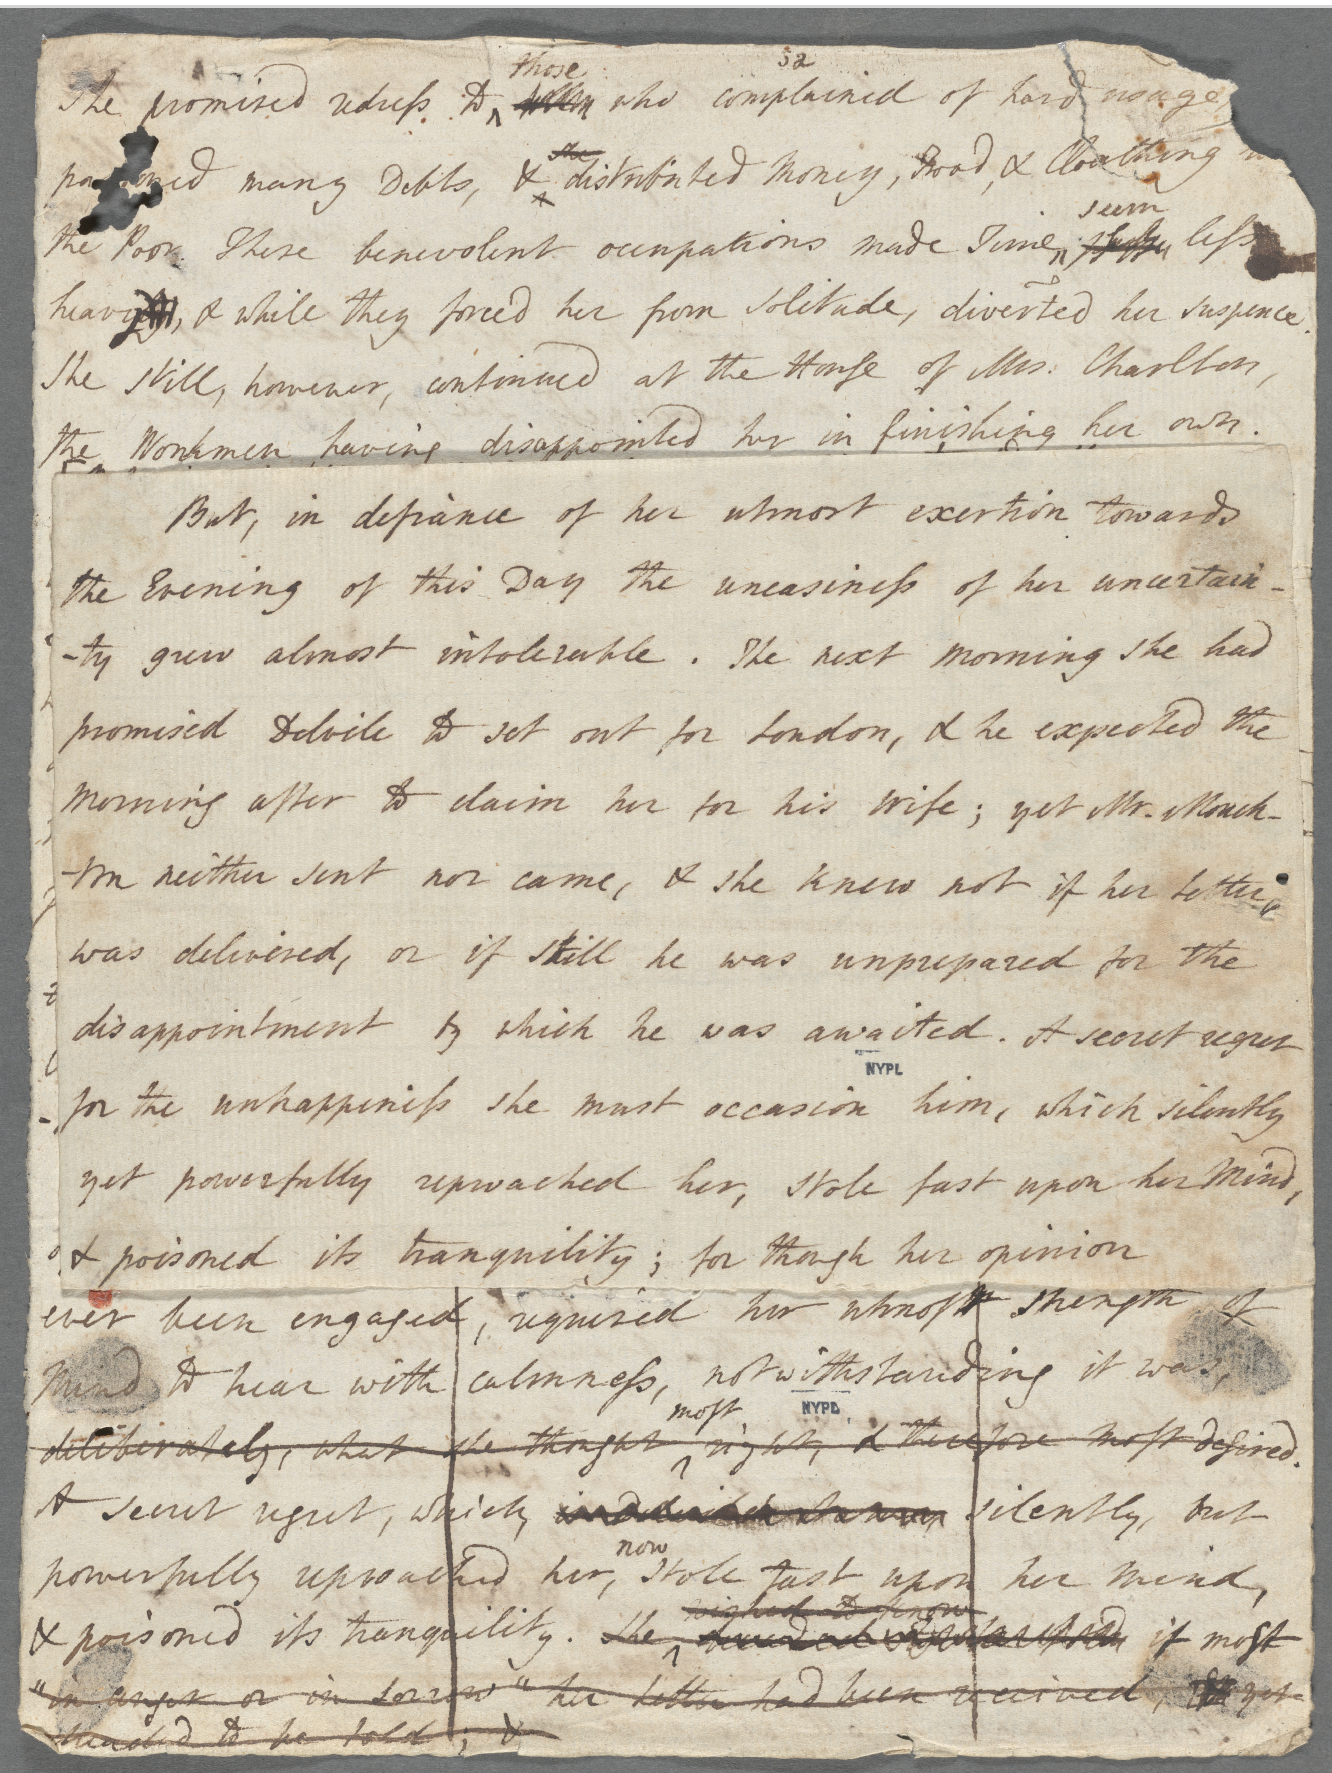 52
those
She promised redress to who complained of hard usage,
many Debts, & she distributed Money, Food, & Cloathing
seem
the Poor. These benevolent occupations made Time, less
heavy, & while they forced her from solitude, diverted her suspence.
She still, however, continued at the House of Mrs. Charlton,
the Workmen having disappointed her in finishing her own.
But, in defiance of her utmost exertion towards
the Evening of this Day the uneasiness of her uncertain-
-ty grew almost intolerable. The next morning she had
promised Delvile to set out for London, & he expected the
morning after to claim her for his Wife; yet Mr. Monck-
-ton neither sent nor came, & she knew not if her letter
was delivered, or if still he was unprepared for the
disappointment by which he was awaited. A secret regret
NYPL
for the unhappiness she must occasion him, which silently
yet powerfully reproached her, stole fast upon her Mind,
& poisoned its tranquility; for though her opinion
ever been engaged, required her utmost strength of
Mind to hear with calmness, notwithstanding it was,
most NYPL
deliberately, what she thought right, & therefore most desired.
A secret regret, which, silently, but
now
powerfully reproached her, stole fast upon her Mind,
wished to know
& poisoned its tranquility. She if most
"in anger or in sorrow" her letter had been received, yet
to be told; &